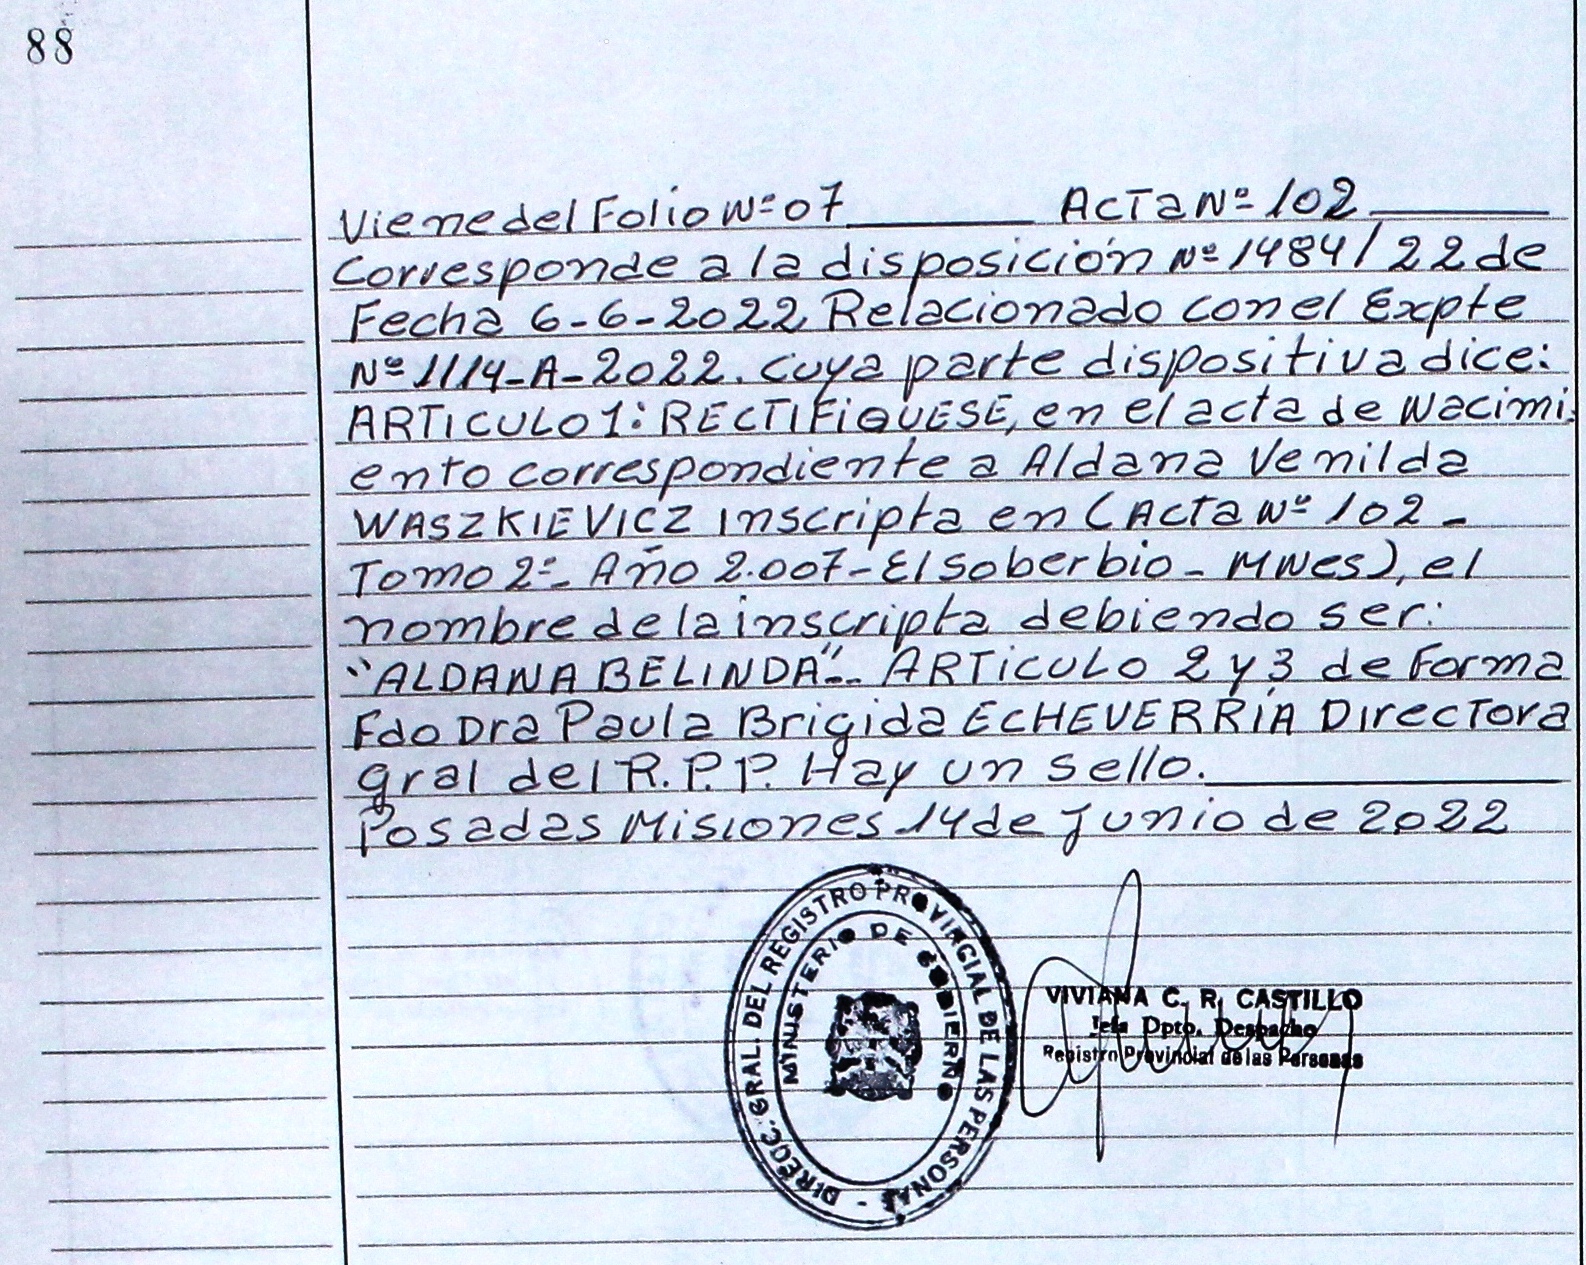 88
Viene del Folio Nº 07 ACTA Nº 102
Corresponde a la disposición Nº 1484/22 de
Fecha 6-6-2022 Relacionado con el Expte
Nº 1114-A-2022. cuya parte dispositiva dice:
ARTICULO 1: RECTIFIQUESE, en el acta de Nacimi-
ento correspondiente a Aldana Venilda
WASZKIEVICZ Inscripta en (Acta Nº 102 -
Tomo 2º- Año 2.007-El Soberbio - MNes), el
nombre de la inscripta debiendo ser:
"ALDANA BELINDA".- ARTICULO 2 y 3 de Forma
Fdo Dra Paula Brigida ECHEVERRÍA Directora
gral del R.P.P. Hay un sello.
Posadas Misiones 14 de Junio de 2022
DIRECC. GRAL. DEL REGISTRO PROVINCIAL DE LAS PERSONAS -
MINISTERIO DE GOBIERNO
VIVIANA C. R. CASTILLO
Jefa Dpto. Despacho
Registro Provincial de las Personas